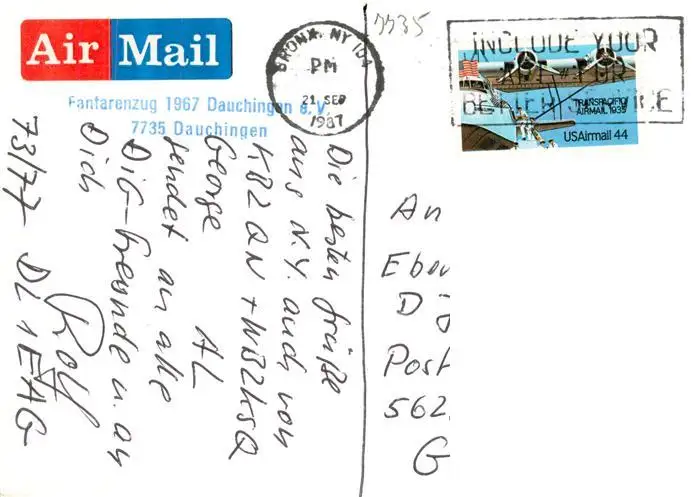 Air Mail
Fanfarenzug 1967 Dauchingen e.V.
7735 Dauchingen
BRONX, NY 104
PM
21 SEP
1987
7735
INCLUDE YOUR
FOR
BETTER SERVICE
TRANSPACIFIC
AIRMAIL 1935
USAirmail 44
Die besten Grüße
aus N.Y. auch von
KB2QN + WB2KSQ
George AL
sendet an alle
DIG-Freunde u. an
Dich
Rolf
73/77 DL1EAG
An
Eber
D
Post
562
G